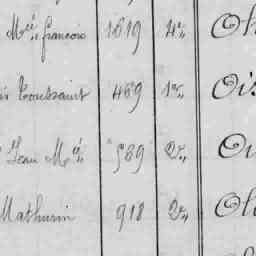 Mie françois 1619 4e Ol
is Toussaint 469 1re Ois
Jean Mie 589 2e Ou
Mathurin 918 2e Ol